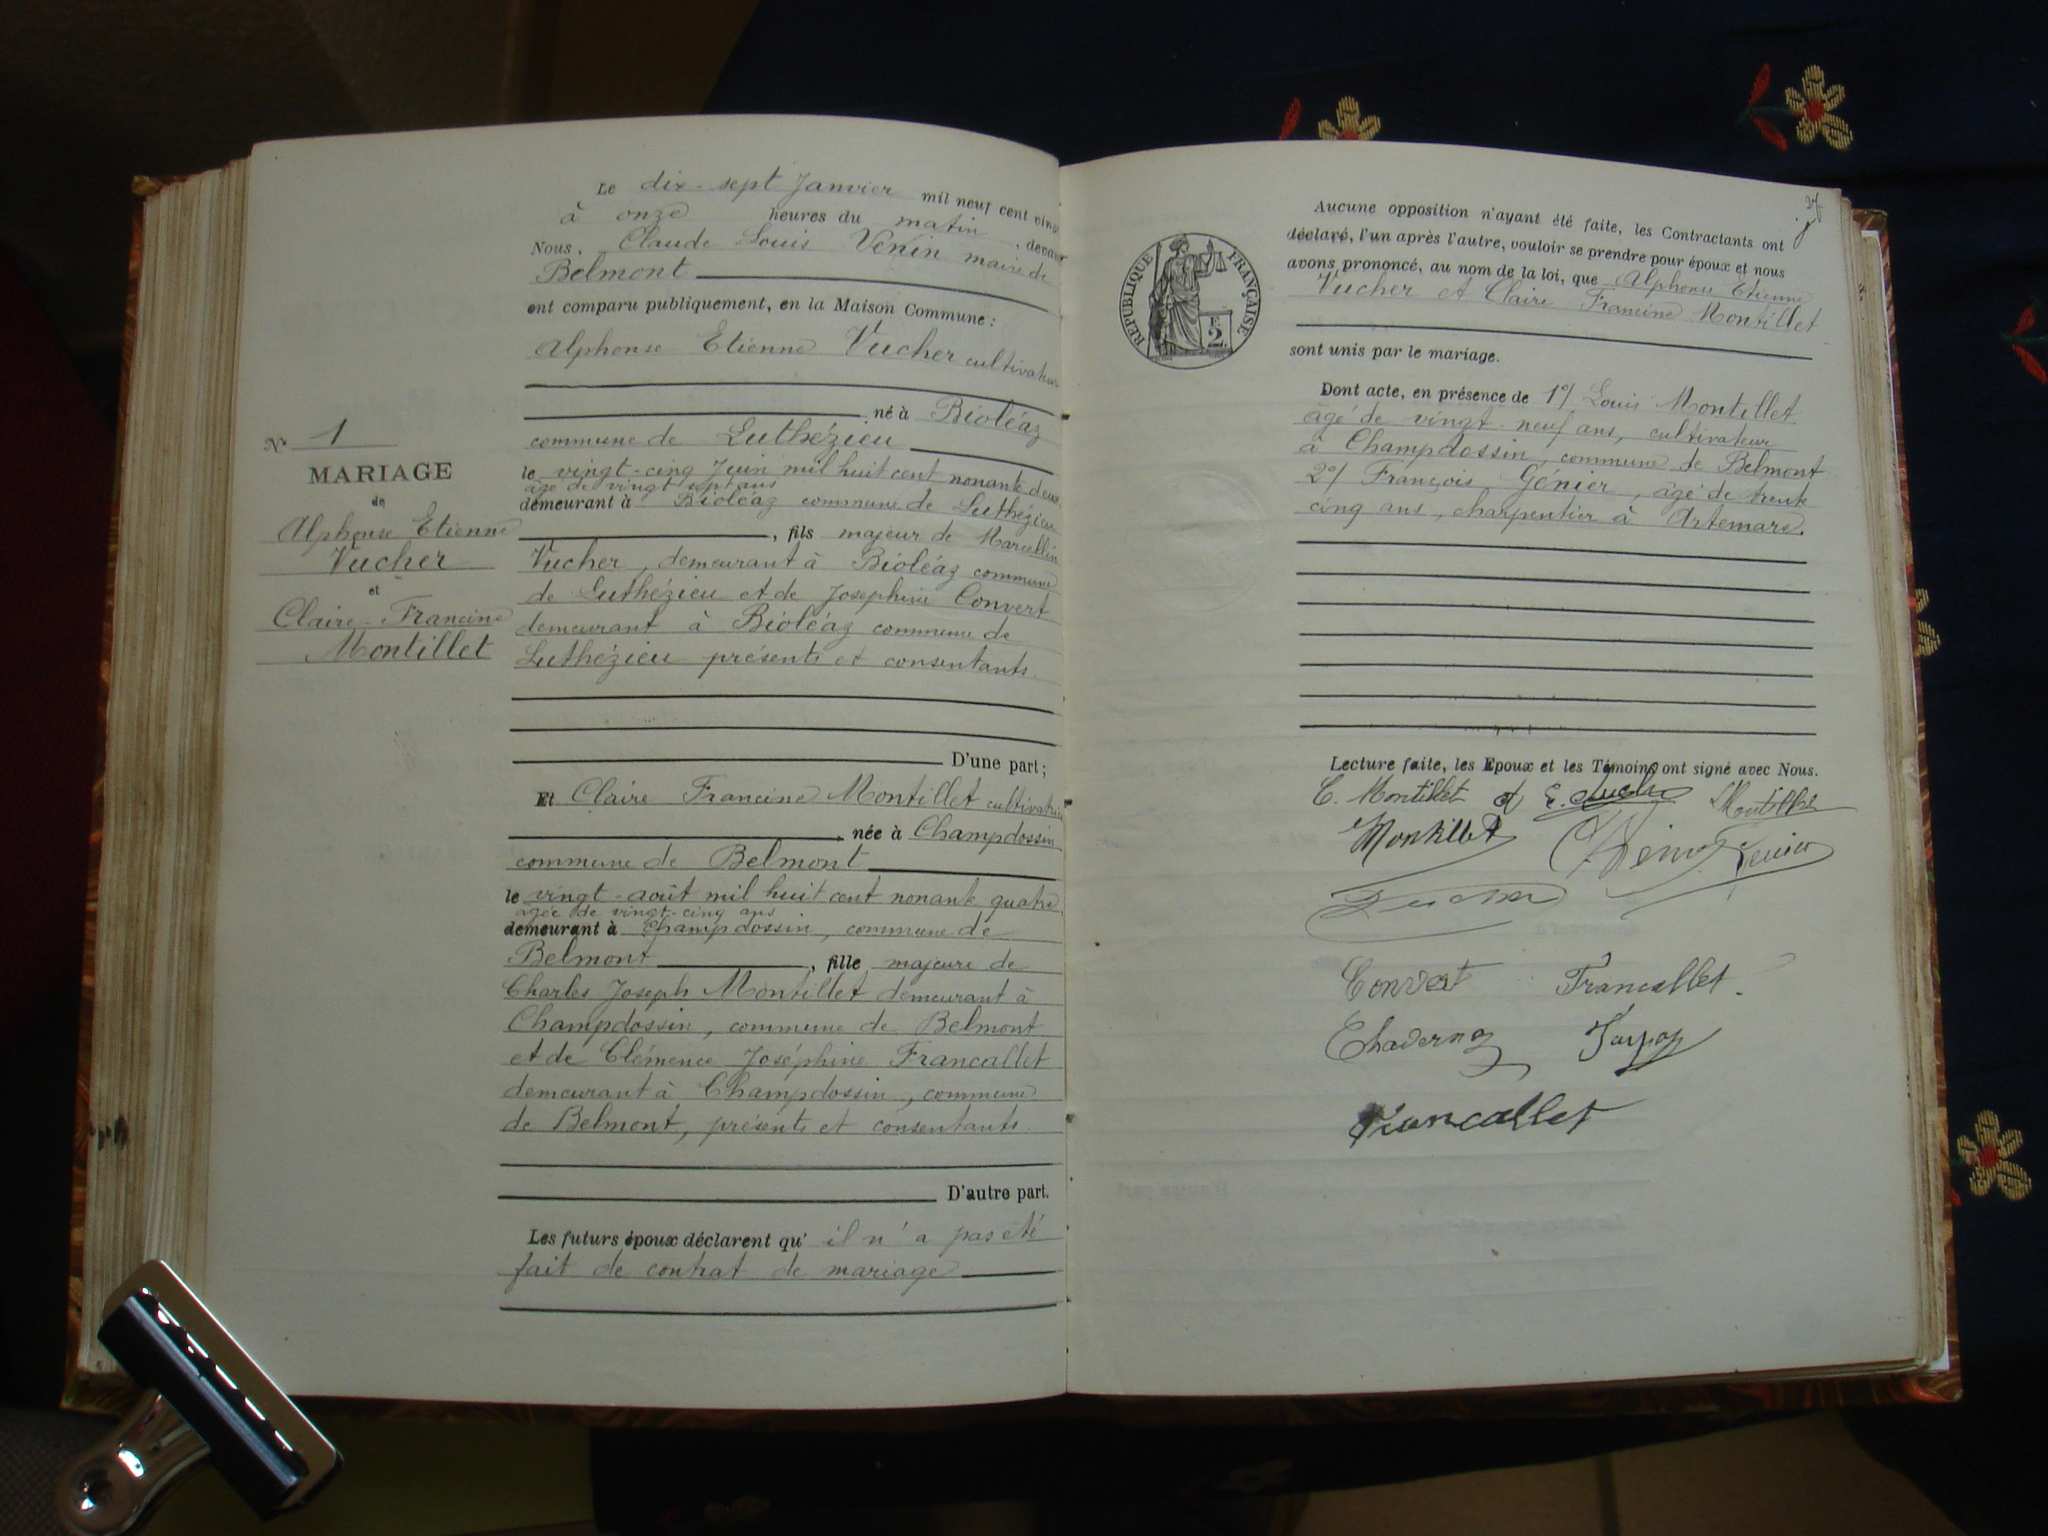 Le dix-sept Janvier mil neuf cent vingt
à onze heures du matin, devant
Nous, Claude Louis Venin maire de
Belmont
ont comparu publiquement, en la Maison Commune :
Alphonse Etienne Vucher cultivateur
né à Bioléaz
commune de Luthézieu
le vingt-cinq Juin mil huit cent nonante deux
âgé de vingt sept ans
demeurant à Bioléaz commune de Luthézieu
, fils majeur de Marcellin
Vucher, demeurant à Bioléaz commune
de Luthézieu et de Josephine Convert
demeurant à Bioléaz commune de
Luthézieu présents et consentants.
D'une part ;
N° 1
MARIAGE
de
Alphonse Etienne
Vucher
et
Claire-Francine
Montillet
Et Claire Francine Montillet cultivatrice
née à Champdossin
commune de Belmont
le vingt-août mil huit cent nonante quatre,
âgée de vingt-cinq ans
demeurant à Champdossin, commune de
Belmont, fille majeure de
Charles Joseph Montillet demeurant à
Champdossin, commune de Belmont
et de Clémence Joséphine Francallet
demeurant à Champdossin, commune
de Belmont, présents et consentants.
D'autre part.
Les futurs époux déclarent qu' il n'a pas été
fait de contrat de mariage
27
RÉPUBLIQUE FRANÇAISE
F. 2
Aucune opposition n'ayant été faite, les Contractants ont
déclaré, l'un après l'autre, vouloir se prendre pour époux et nous
avons prononcé, au nom de la loi, que Alphonse Etienne
Vucher et Claire Francine Montillet
sont unis par le mariage.
Dont acte, en présence de 1°/ Louis Montillet
âgé de vingt-neuf ans, cultivateur
à Champdossin, commune de Belmont
2°/ François Génier, âgé de trente
cinq ans, charpentier à Artemare.
Lecture faite, les Epoux et les Témoins ont signé avec Nous.
C. Montillet
Montillet
Montillet
Venin
Génier
Vucher
Convert Francallet
Chavernoz
Francallet